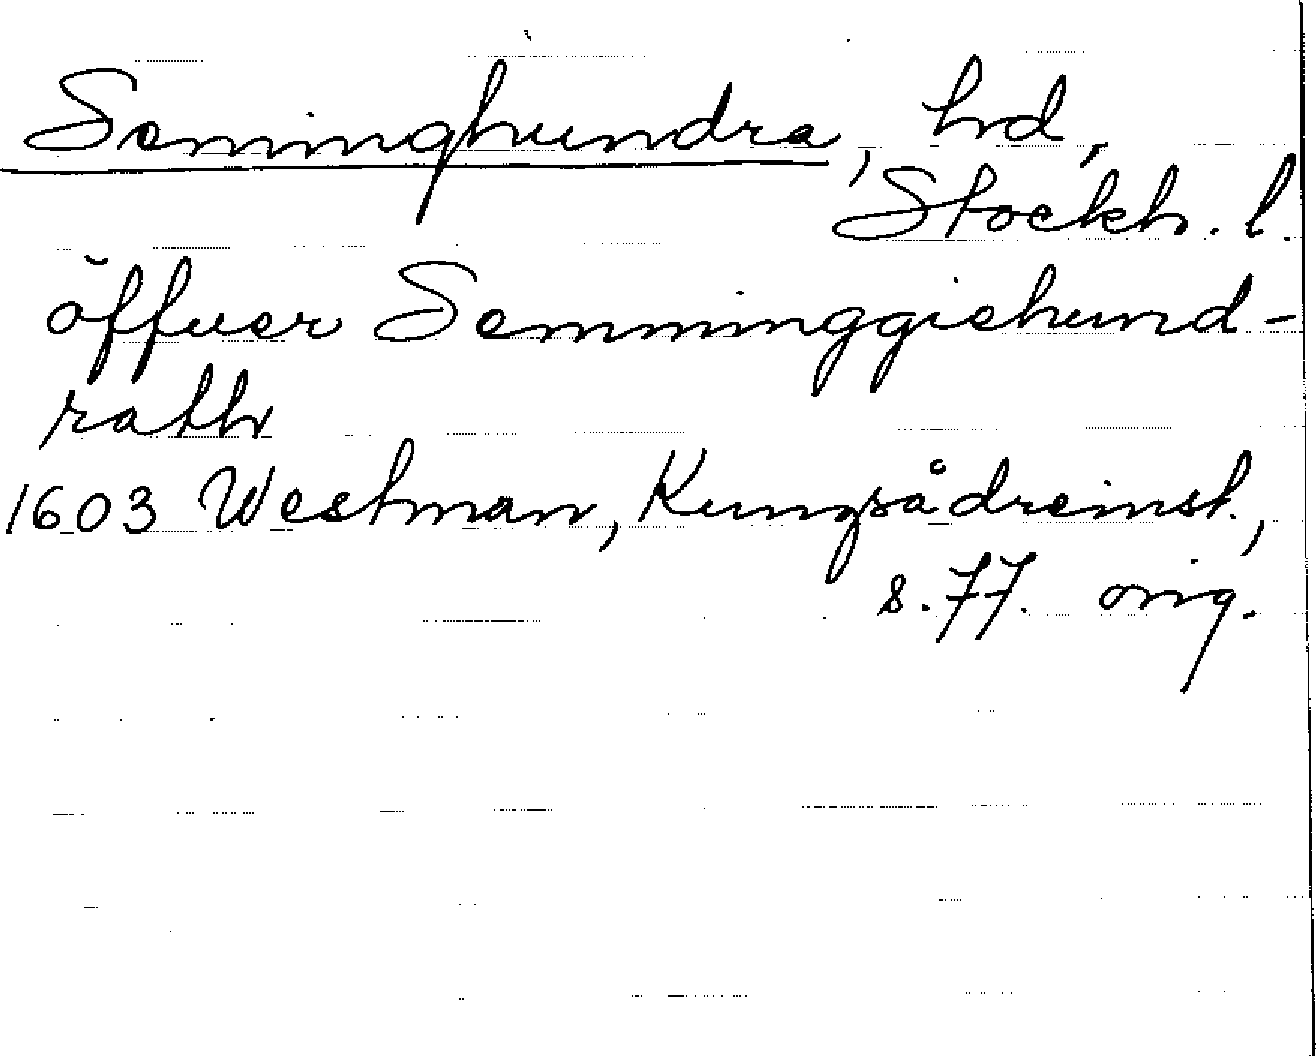 Seminghundra, hd,
Stockh. l.
öffuer Semminggiehund-
rath
1603 Westman, Kungsådreinst.,
s. 77. orig.